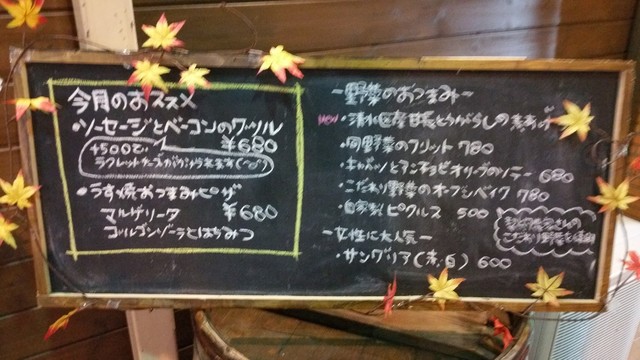 今月のおススメ
・ソーセージとベーコンのワッフル
¥680
+500で
ラクレットチーズがかけられます(^o^)
・うす焼おつまみピザ
マルゲリータ ¥680
ゴルゴンゾーラとはちみつ
ー野菜のおつまみー
NEW・清水区産甘長とうがらしの素あげ
・同野菜のフリット 780
・キャベツとアンチョビオリーブのソテー 680
・こだわり野菜のオーブンベイク 780
・自家製ピクルス 500
こだわり野菜を使用
ー女性に大人気ー
・サングリア(赤・白) 600